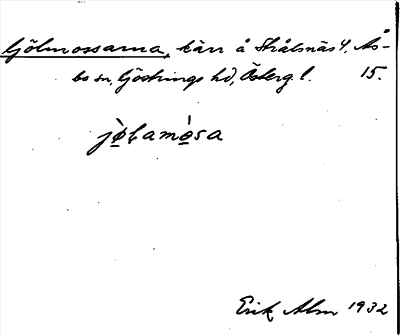 Gjölmossarna, kärr å Strålsnäs 4. Ås-
bo sn, Göstrings hd, Östergl. 15.
jø̀lamø̀sa
Erik Alm 1932